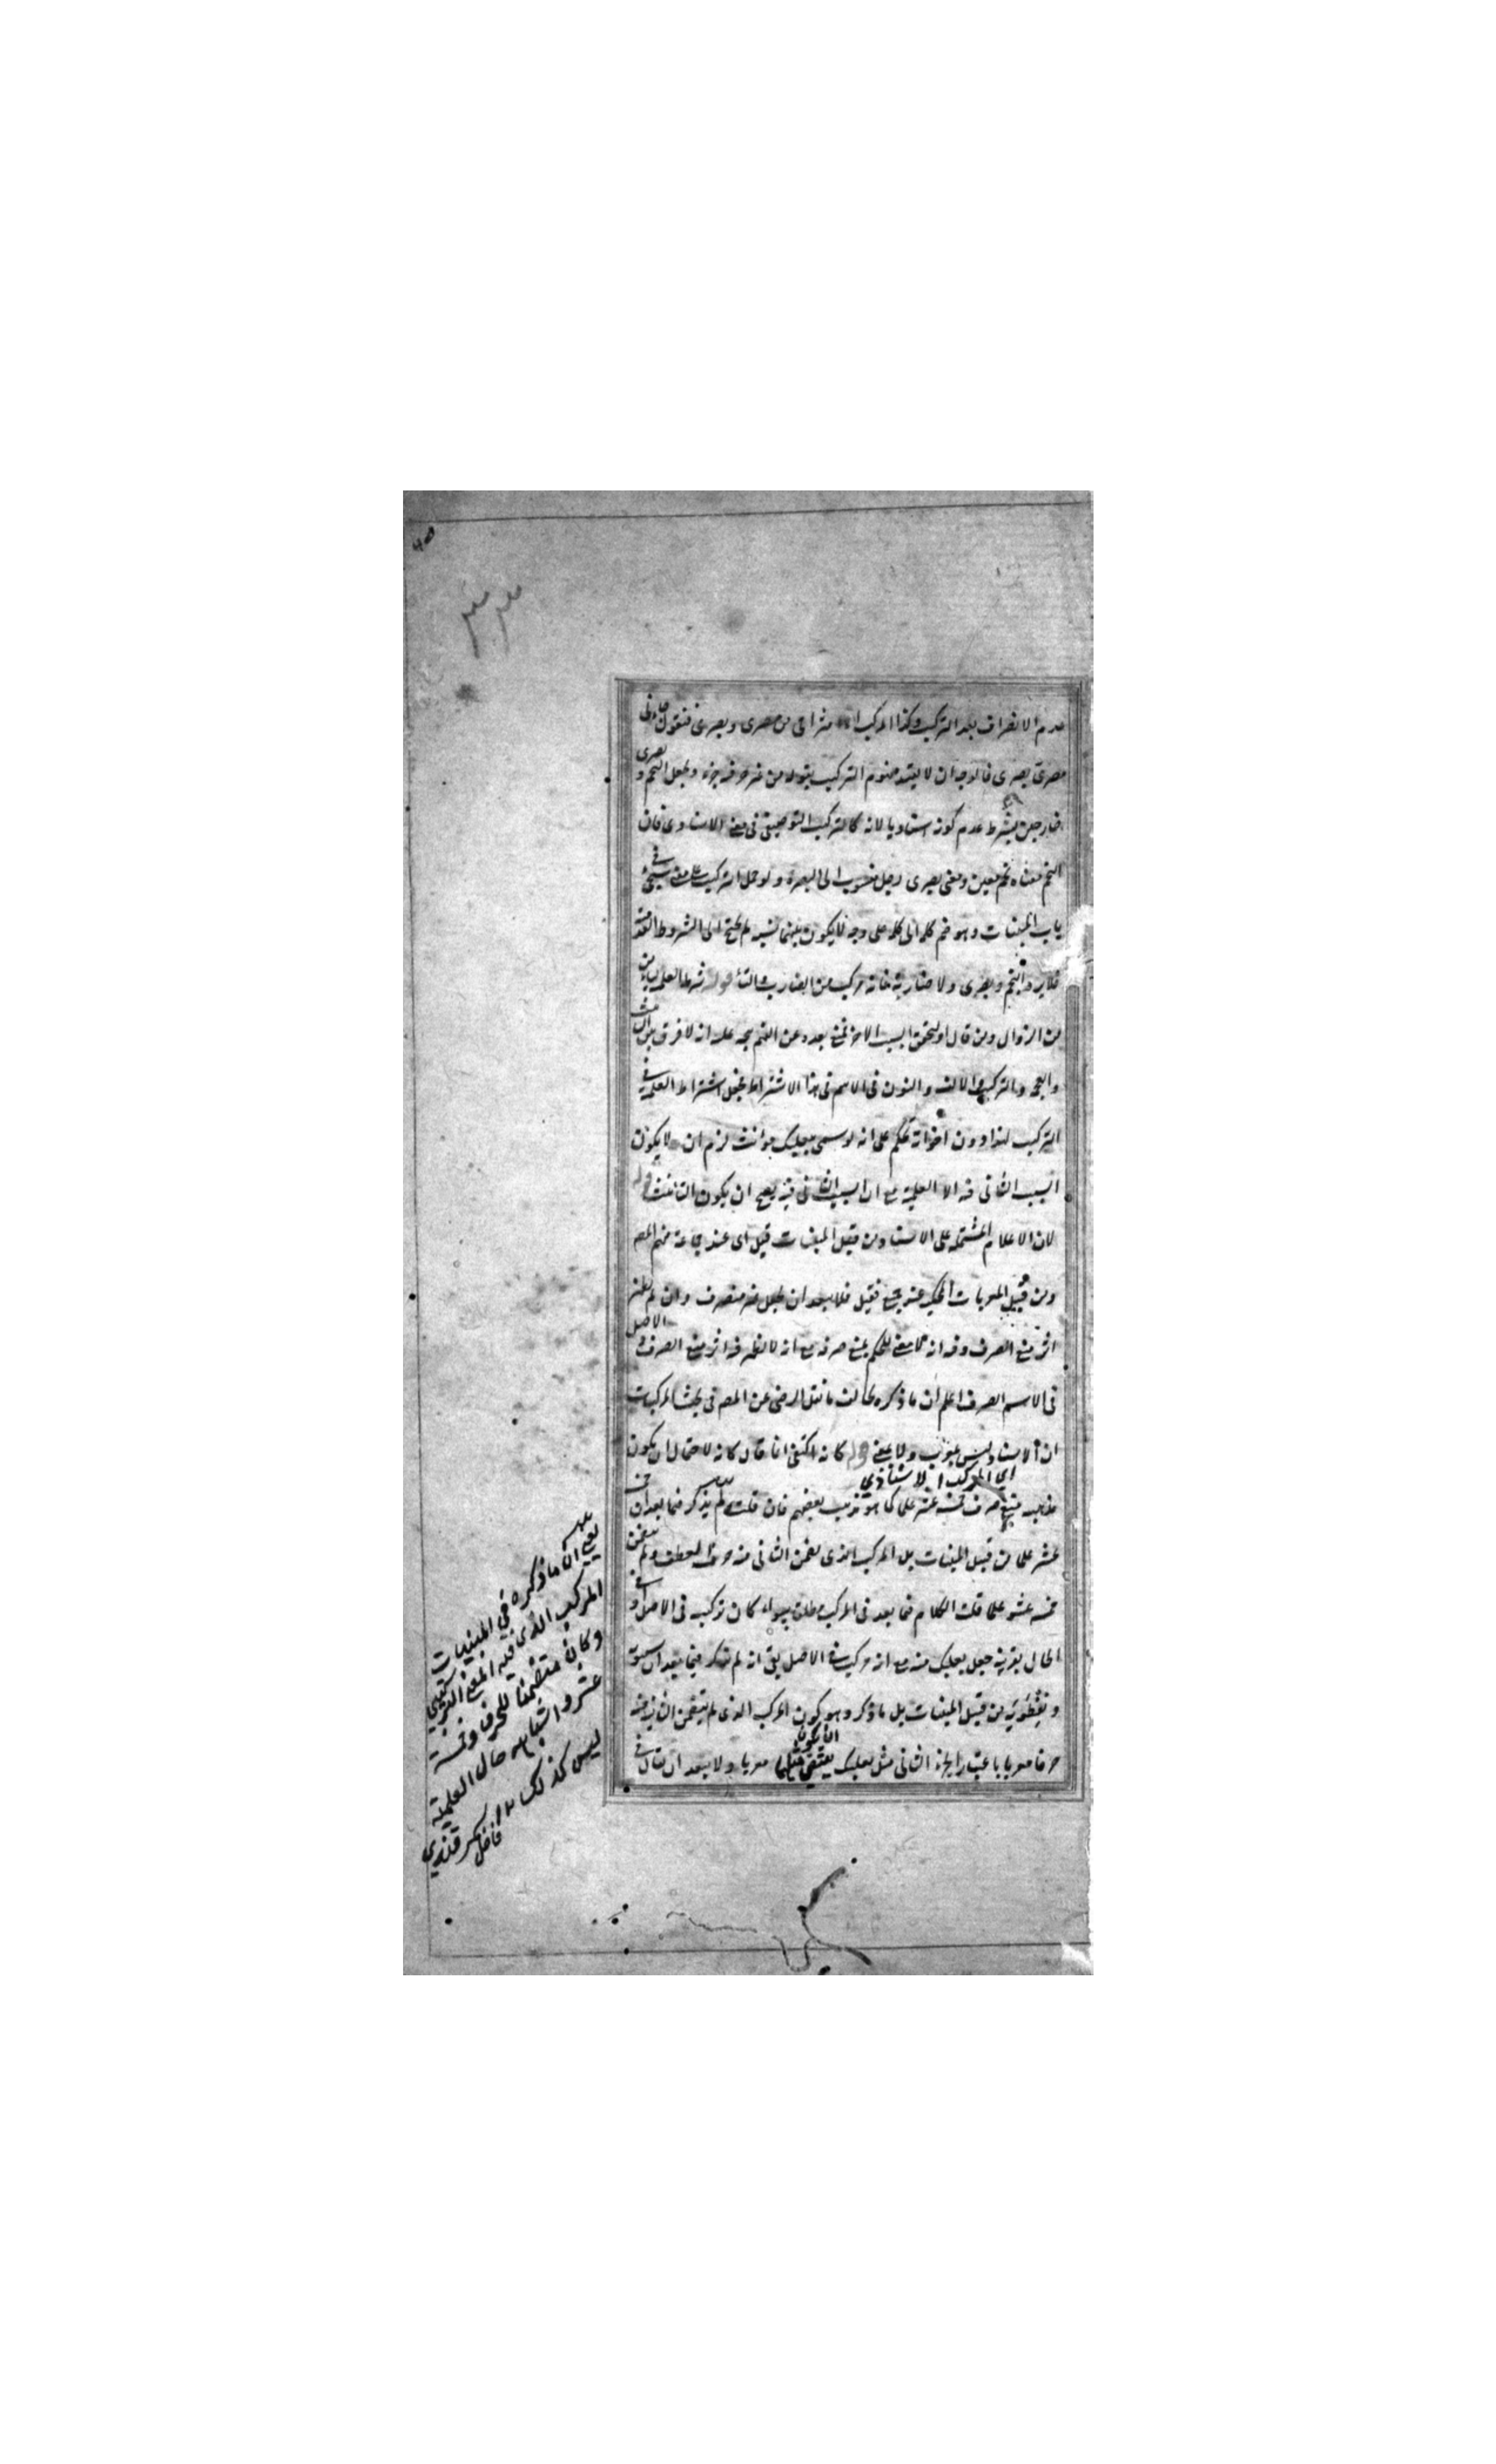 عدم الانصراف بعد التركيب وكذا المركب من مصرى وبصرى فنقول جاءنى
مصرى بصرى فالوجه ان لا يقيد مفهوم التركيب بقوله من غير حرفية جزء ويجعل النجم و بصرى
خارجين بشرط عدم كونه اسناديا لانه كالتركيب التوصيفى فى معنى الاسنادى فان
النجم معناه نجم معين ومعنى بصرى رجل منسوب الى البصرة ولو حمل التركيب على معنى سيجئ فى
باب المبنيات وهو ضم كلمة الى كلمة على وجه لا يكون بينهما نسبة لم يحتج الى الشروط العدمية
فلا يرد النجم وبصرى ولا ضاربة فانه مركب من الضارب والتاء قوله شرطه العلمية ليأمن
من الزوال ومن قال او ليتحقق السبب الاخر يتجه عليه انه لا فرق بين
والعجمة والتركيب والالف والنون فى الاسم فى هذا الاشتراط فجعل اشتراط العلمية فى
التركيب لهذا دون اخواته تحكم على انه لو سمى ببعلبك مؤنث لزم ان لا يكون
السبب الثانى فيه الا العلمية مع ان السبب الثانى فيه يصح ان يكون التانيث قوله
لان الاعلام المشتملة على الاسناد من قبيل المبنيات قيل اى عند جماعة منهم المص
ومن قبيل المعربات المحكية عند جمع فقيل فلا يبعد ان يجعل غير منصرف وان لم يظهر
اثر منع الصرف وفيه انه لا معنى للحكم بمنع صرفه مع انه لا يظهر فيه اثر منع الصرف و الاصل
فى الاسم الصرف اعلم ان ما ذكره يخالف ما نقل الرضى عن المص فى بحث المركبات
ان الاسناد ليس بمعرب ولا مبنى قوله كانه اكتفى انما قال كانه لاحتمال ان يكون
اى المركب الاسنادي
مذهبه منع صرف خمسة عشر علما كما هو مذهب بعضهم فان قلت لم يذكر فيما بعد ان خمسة
عشر علما من قبيل المبنيات بل المركب الذى تضمن الثانى منه حرف العطف ولم يتضمن
خمسة عشر علما قلت الكلام فيما بعد فى المركب مطلقا سواء كان تركيبه فى الاصل او فى
الحال بقرينة جعل بعلبك منه مع انه مركب فى الاصل بقى انه لم يذكر فيما بعد ان سيبويه
و نفطويه من قبيل المبنيات بل ما ذكر وهو كون المركب الذى لم يتضمن الثانى منه
حرفا معربا باعتبار الجزء الثانى مثل بعلبك يقتضى ان يكونا معربا ولا يبعد ان يقال فى
يعنى ان ما ذكره فى المبنيات
المركب الذى فيه المعنى التركيبي
وكان متضمنا للحرف وخمسة
عشر واشباهه حال العلمية
ليس كذلك ١٢
فاضل سمرقندي